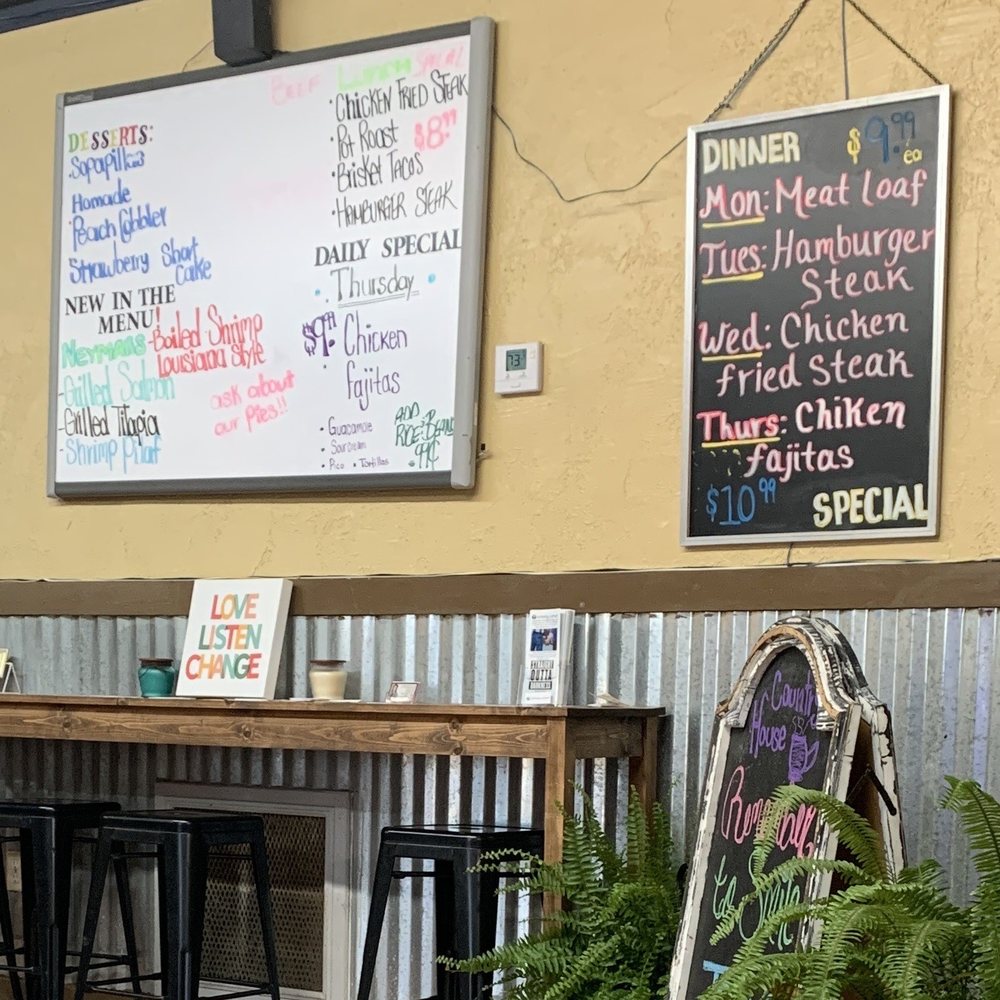 DESSERTS:
Sopapillas
Homade
·Peach Cobbler
Strawberry Short
Cake
NEW IN THE
MENU!
New Menu
-Boiled Shrimp
Louisiana Style
-Grilled Salmon
-Grilled Tilapia
-Shrimp Pilaf
ask about
our pies!!
BEEF
Lunch SPECIAL
·CHICKEN FRIED STEAK
·Pot Roast
$8.99
·BRISKET TACOS
·HAMBURGER STEAK
DAILY SPECIAL
·Thursday·
$9.99 Chicken
fajitas
·Guacamole
·Sour cream
·Pico ·Tortillas
ADD
RICE & BEANS
99¢
DINNER $9.99
ea
Mon: Meat Loaf
Tues: Hamburger
Steak
Wed: Chicken
fried Steak
Thurs: ChiKen
fajitas
$10.99 SPECIAL
LOVE
LISTEN
CHANGE
OUTTA
Country
House
to Smile